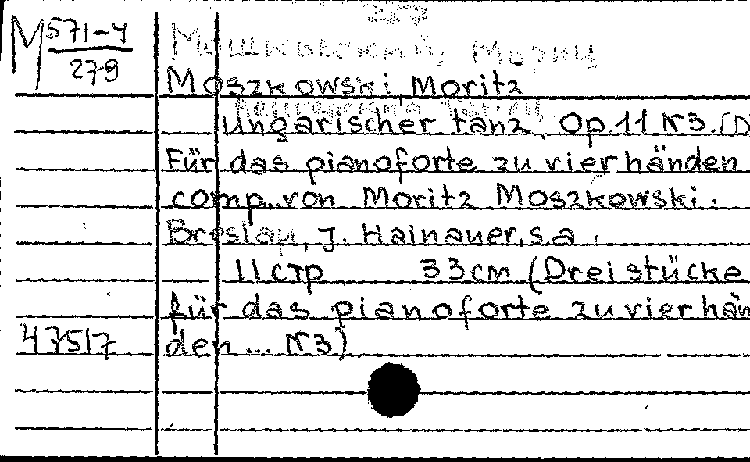 М 571-4
279
Мошковский, Мориц
Moszkowski, Moritz
Ungarischer tanz. Op. 11 N3. (D
Für das pianoforte zu vier händen
comp. von Moritz Moszkowski.
Breslau, J. Hainauer, s.a.
11 стр 33 cm (Drei stücke
für das pianoforte zu vier hän
den... N3)
47517